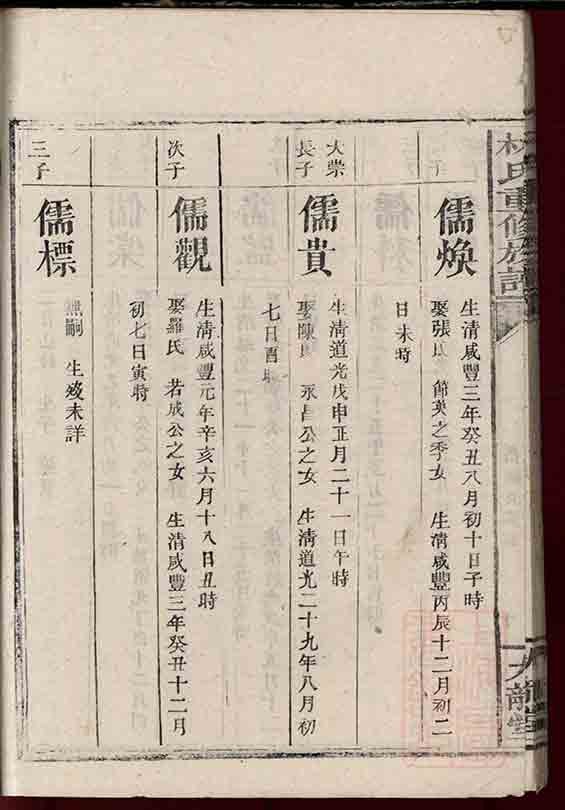 林氏重修族譜
儒煥
生清咸豐三年癸丑八月初十日子時
娶張氏 節英之季女 生清咸豐丙辰十二月初二
日未時
大榮
長子
儒貴
生清道光戊申正月二十一日午時
娶陳氏 永昌公之女 生清道光二十九年八月初
七日酉時
次子
儒觀
生清咸豐元年辛亥六月十八日丑時
娶羅氏 若成公之女 生清咸豐三年癸丑十二月
初七日寅時
三子
儒標
無嗣 生歿未詳